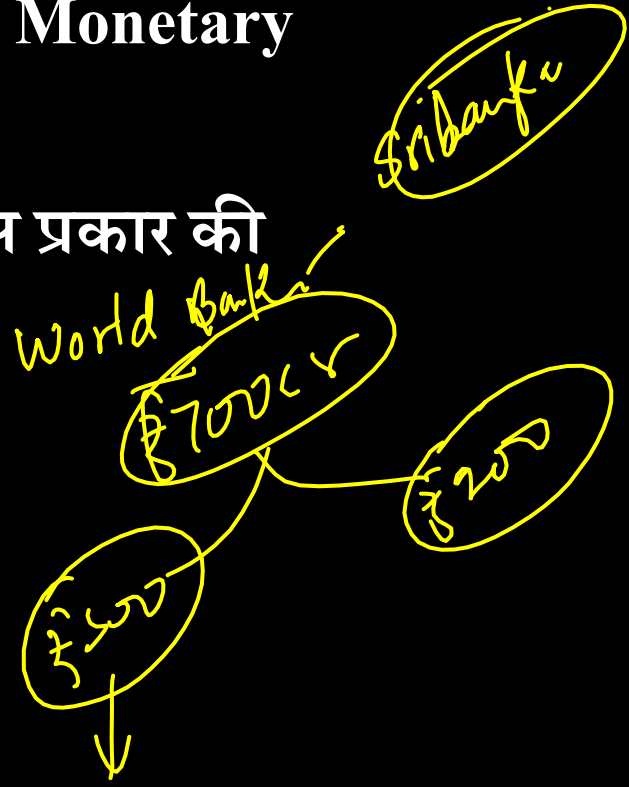 Monetary
Sribanka
प्रकार की
World Bank
₹700cr
₹200
₹500